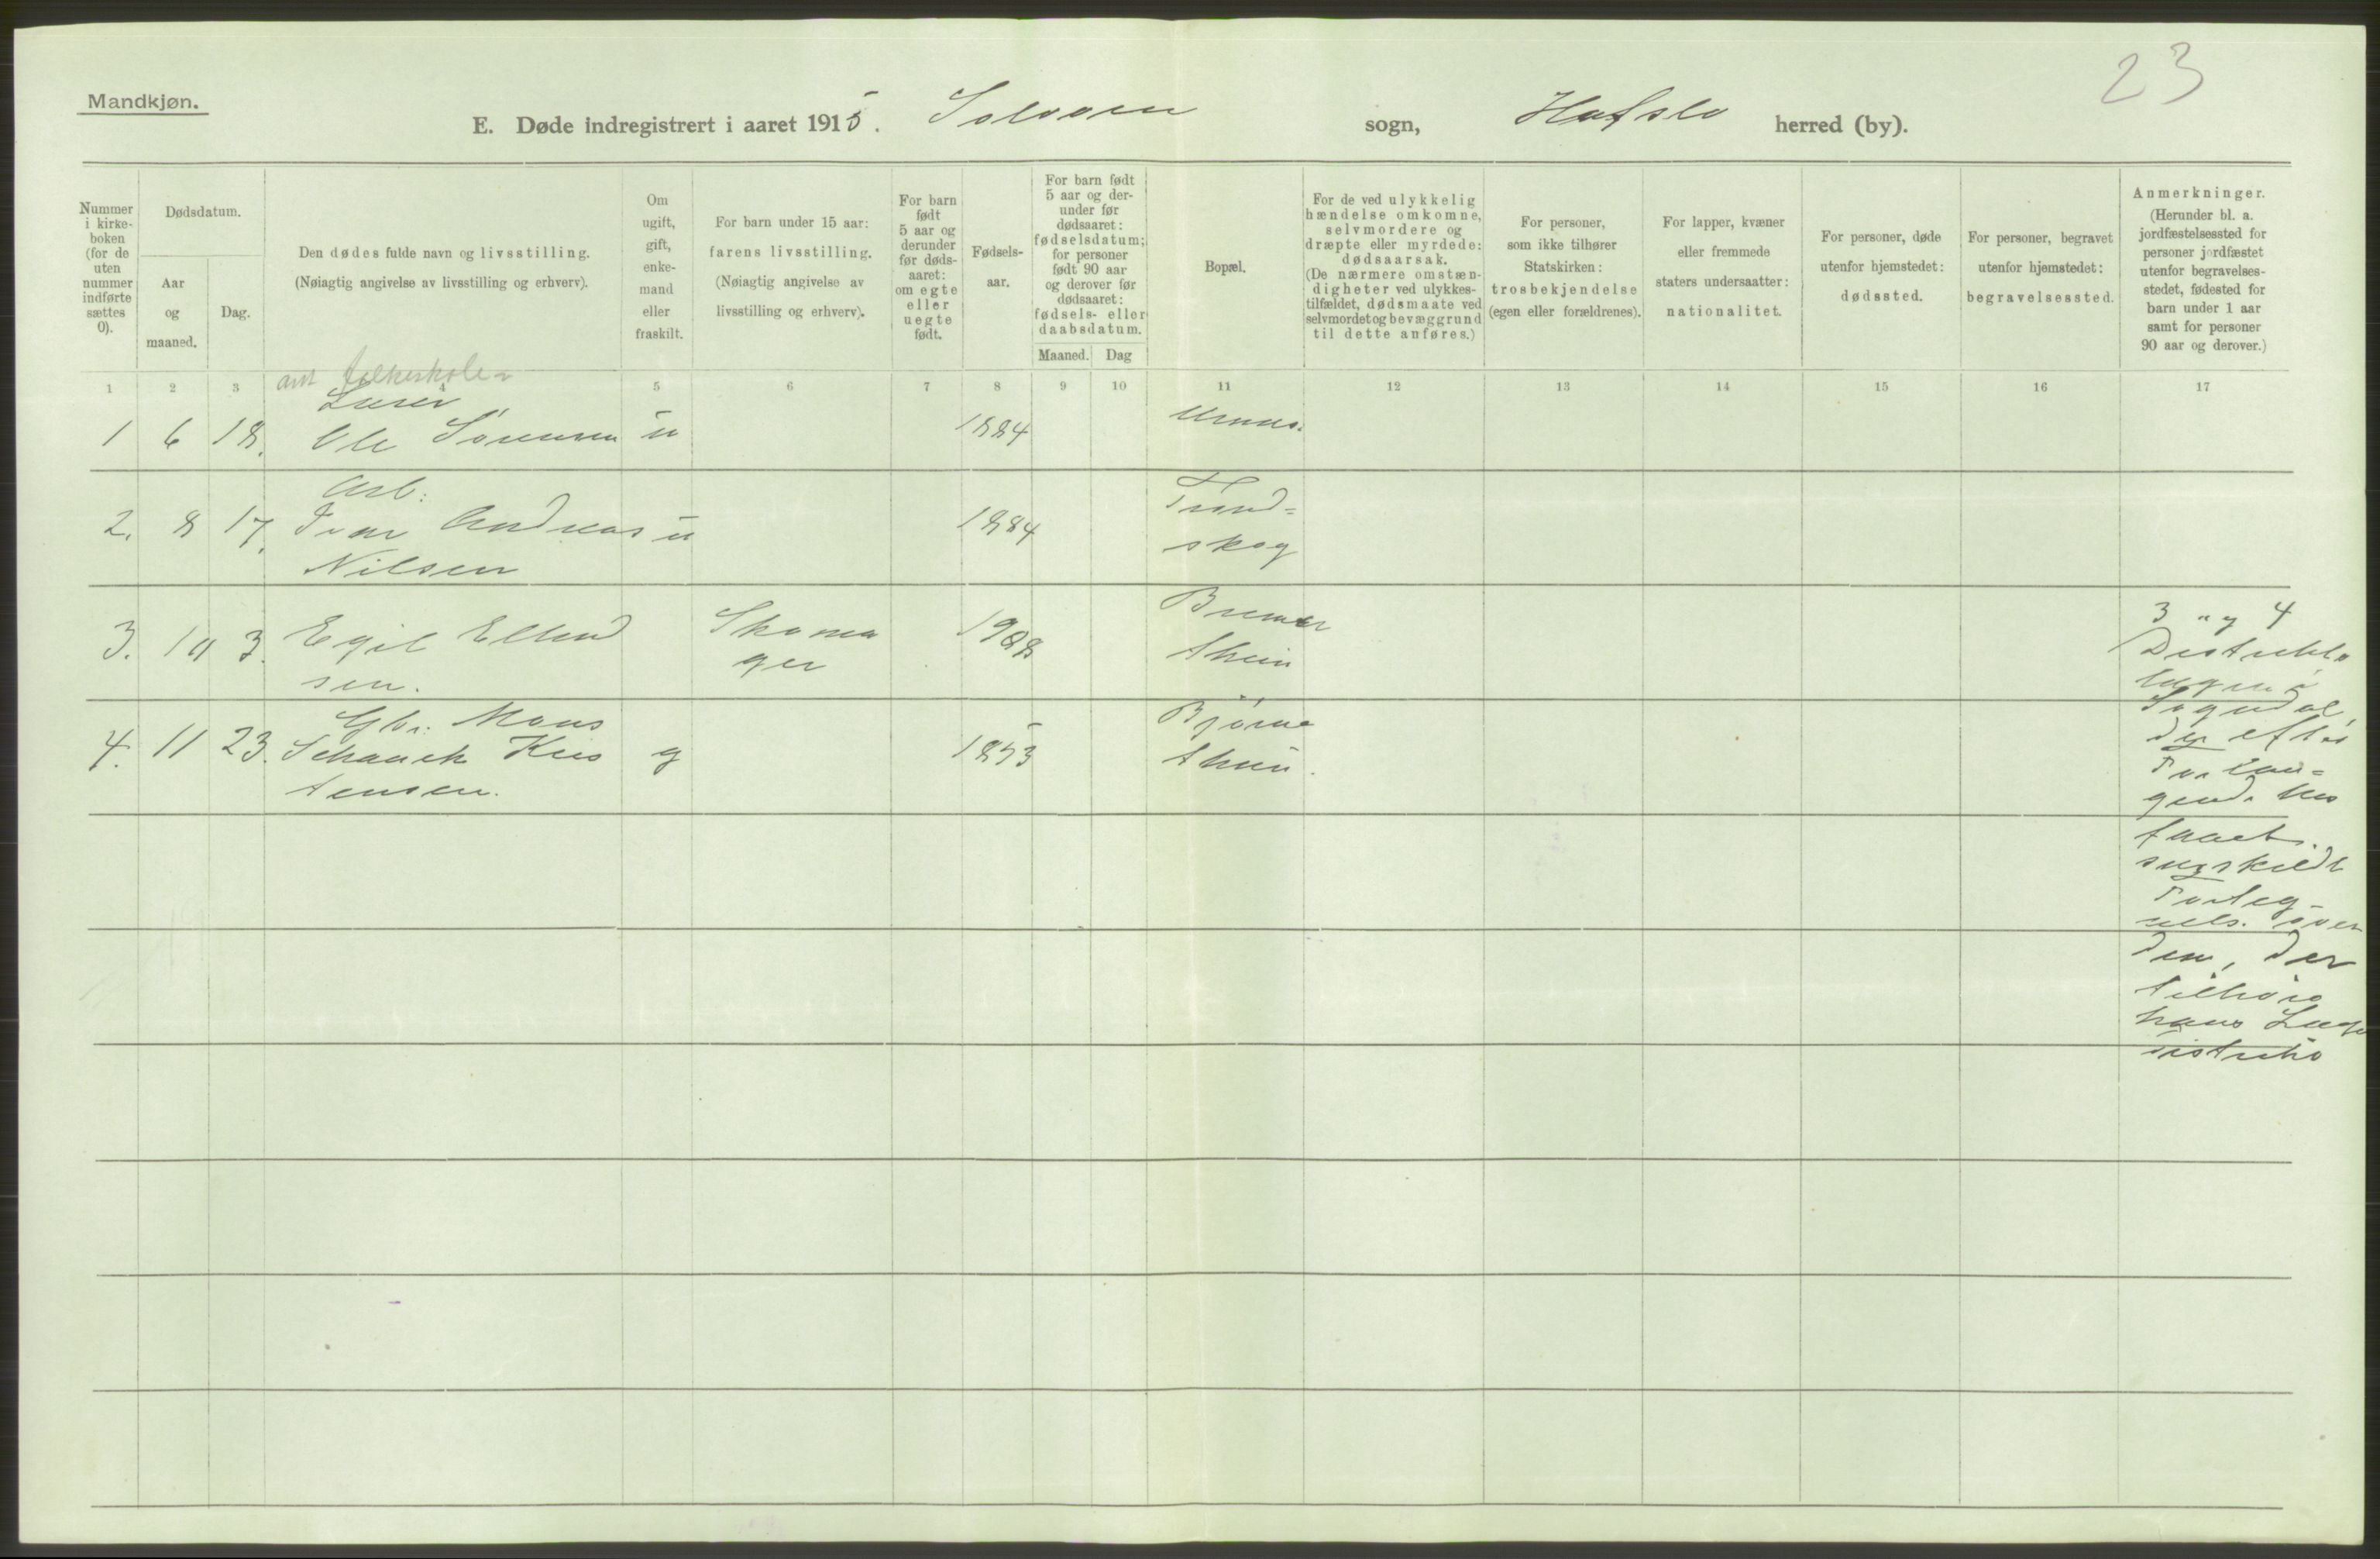 23
Mandkjøn.
E. Døde indregistrert i aaret 1915. Solvorn sogn, Hafslo herred (by).
Nummer i kirke-boken (for de uten nummer indførte sættes 0).
Dødsdatum.
Aar og maaned.
Dag.
Den dødes fulde navn og livsstilling.
(Nøiagtig angivelse av livsstilling og erhverv).
Om ugift, gift, enke-mand eller fraskilt.
For barn under 15 aar: farens livsstilling.
(Nøiagtig angivelse av livsstilling og erhverv).
For barn født 5 aar og derunder før døds-aaret: om egte eller uegte født.
Fødsels-aar.
For barn født 5 aar og der-under før dødsaaret: fødselsdatum; for personer født 90 aar og derover før dødsaaret: fødsels- eller daabsdatum.
Maaned. Dag
Bopæl.
For de ved ulykkelig hændelse omkomne, selvmordere og dræpte eller myrdede: dødsaarsak.
(De nærmere omstæn-digheter ved ulykkes-tilfældet, dødsmaate ved selvmordet og bevæggrund til dette anføres.)
For personer, som ikke tilhører Statskirken: trosbekjendelse (egen eller forældrenes).
For lapper, kvæner eller fremmede staters undersaatter: nationalitet.
For personer, døde utenfor hjemstedet: dødssted.
For personer, begravet utenfor hjemstedet: begravelsessted.
Anmerkninger.
(Herunder bl. a. jordfæstelsessted for personer jordfæstet utenfor begravelses-stedet, fødested for barn under 1 aar samt for personer 90 aar og derover.)
1 2 3 4 5 6 7 8 9 10 11 12 13 14 15 16 17
folkeskole
Lærer
1 6 18. Ole Sørensen u 1884 Urnes.
Arb.
2. 8 17. Ivar Andreas u 1884
Nilsen
skog
3. 10 3. Egil Ellend
sen.
Skoma
ger
1908
Gbr. Mons
4. 11 23. Schanch Kris
tensen.
g 1853
3 og 4
Distrikts
lægen i
Sogndal,
der efter
Forlan=
gende har
faaet
særskildt
Forteg-
nels. over
dem, der
tilhøre
hans Læge
distrikt